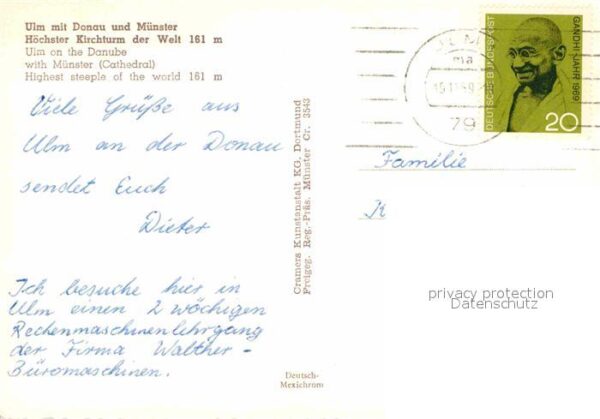 Ulm mit Donau und Münster
Höchster Kirchturm der Welt 161 m
Ulm on the Danube
with Münster (Cathedral)
Highest steeple of the world 161 m
Viele Grüße aus
Ulm an der Donau
sendet Euch
Dieter
Ich besuche hier in
Ulm einen 2 wöchigen
Rechenmaschinenlehrgang
der Firma Walther-
Büromaschinen.
Cramers Kunstanstalt KG. Dortmund
Freigeg. Reg.-Präs. Münster Cr. 3543
Deutsch-
Mexichrom
ma
79
DEUTSCHE BUNDESPOST
GANDHI-JAHR 1969
20
Familie
K
privacy protection
Datenschutz